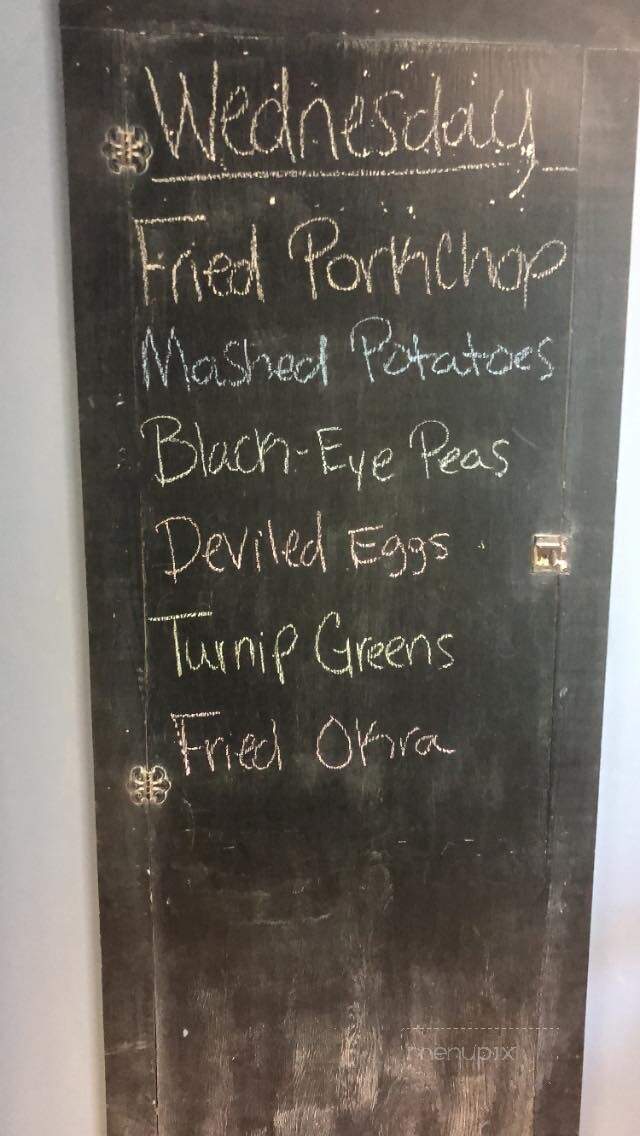 Wednesday
Fried PorkChop
Mashed Potatoes
Black-Eye Peas
Deviled Eggs
Turnip Greens
Fried Okra
menupix